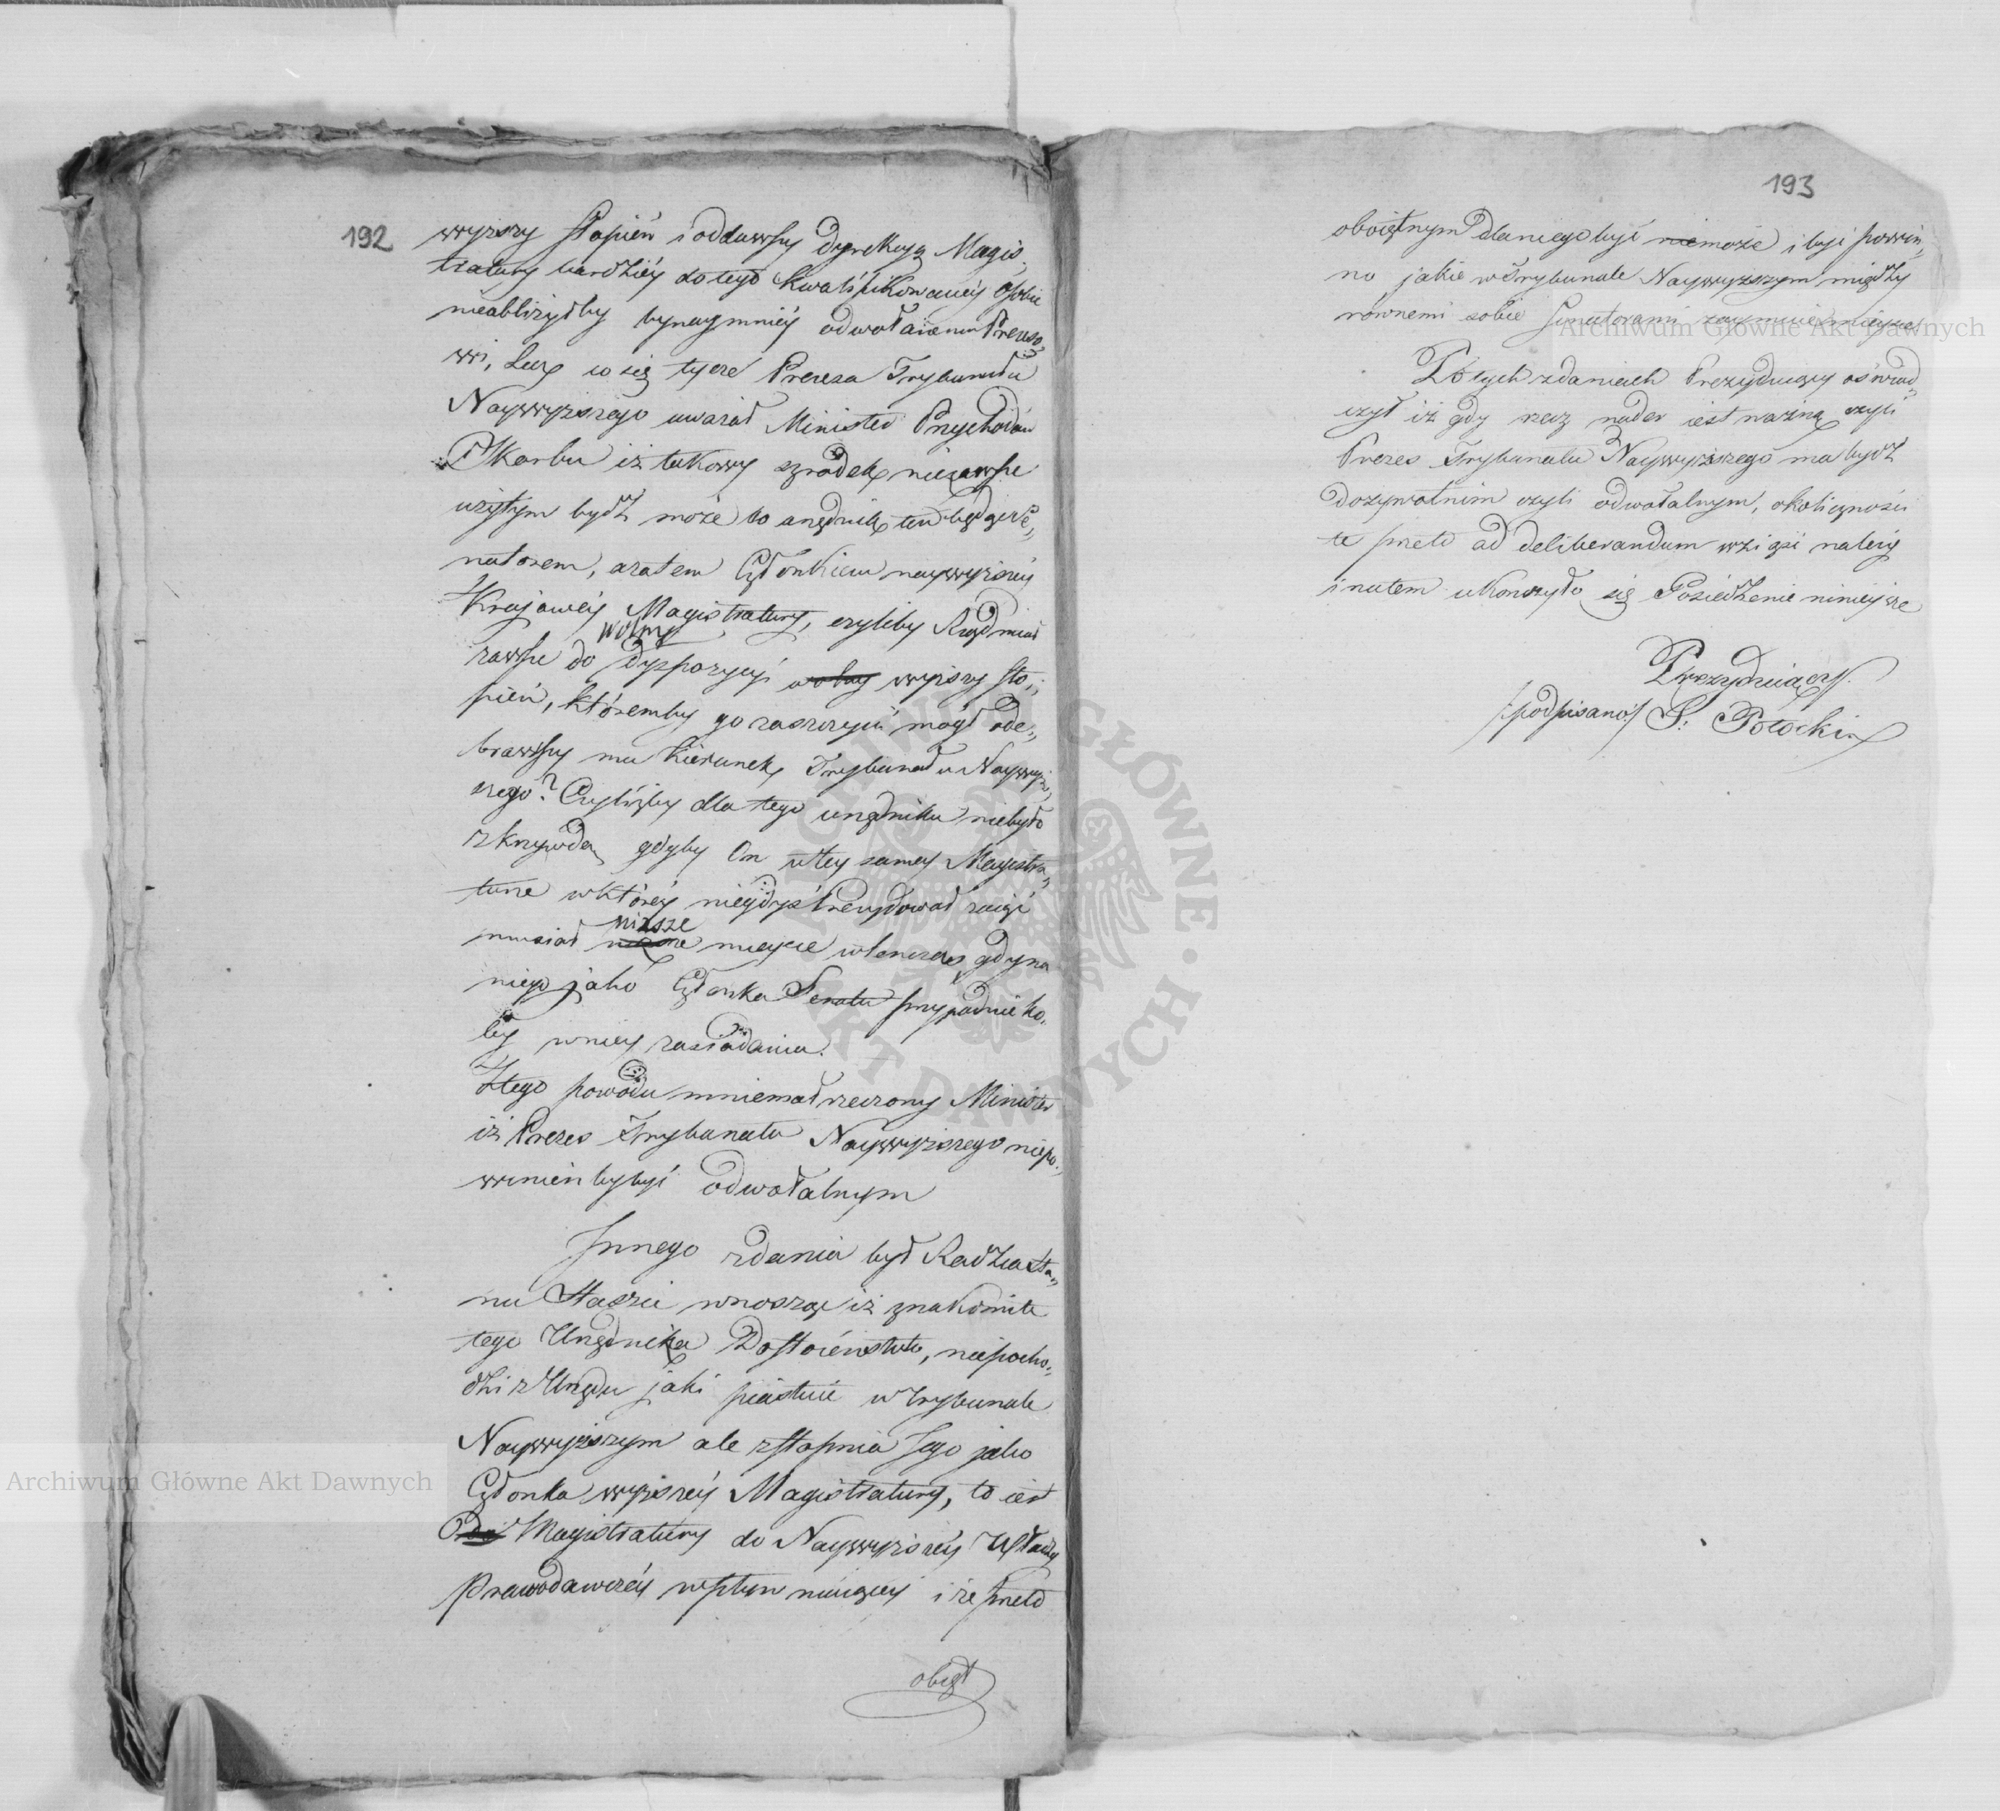 192
wyższy stopień i oddawszy dyrekcyą Magis-
tratury bardziéy do tego kwalifikowanéy osobie
nieubliżyłby bynaymniéy odwołanemu Prezeso-
wi, Lecz co się tycze Prezesa Trybunału
Naywyższego uważał Minister Przychodów
i Skarbu iż takowy szrodek niezawsze
użytym bydź może bo urzędnik ten będąc Se-
natorem, a zatem Członkiem naywyższéy
Krajowéy Magistratury, czyliby Rząd miał
zawsze do dyspozycyi wolny wyższy sto-
pień, któremby go zaszczycić mógł ode-
brawszy mu kierunek Trybunału Naywyż-
szego? Czyliżby dla tego urzędnika niebyło
z krzywdą gdyby On w tey samey Magistra-
turze w któréy niegdyś Prezydował zaiąć
musiał niższe mieysce wtenczas gdy na
niego jako Członka Senatu przypadnie ko-
ley w niey zasiadania.
Z tego powodu mniemał rzeczony Minister
iż Prezes Trybunału Naywyższego niepo-
winien by być odwołalnym
Innego zdania był Radzca Sta-
nu Staszic wnosząc iż znakomite
tego Urzędnika Dostoieństwo, niepocho-
dzi z Urzędu jaki piastuie w Trybunale
Naywyższym ale z stopnia Jego jako
Członka wyższéy Magistratury, to iest
Magistratury do Naywyższéy Władzy
Prawodawczéy wpływ maiącéy i że przeto
oboięt
193
oboiętnym dla niego być może i być powin-
no jakie w Trybunale Naywyższym między
równemi sobie Senatorami zaymuie mieysce
Po tych zdaniach Prezyduiący oświad-
czył iż gdy rzecz nader iest ważną czyli
Prezes Trybunału Naywyższego ma bydź
Dożywotnim czyli odwołalnym, okoliczności
te przeto ad deliberandum wziąść należy
i na tem ukończyło się Posiedzenie ninieysze
Prezyduiący.
/podpisano/ S: Potocki.
Archiwum Główne Akt Dawnych
Archiwum Główne Akt Dawnych
ARCHIWUM GŁÓWNE · AKT DAWNYCH ·